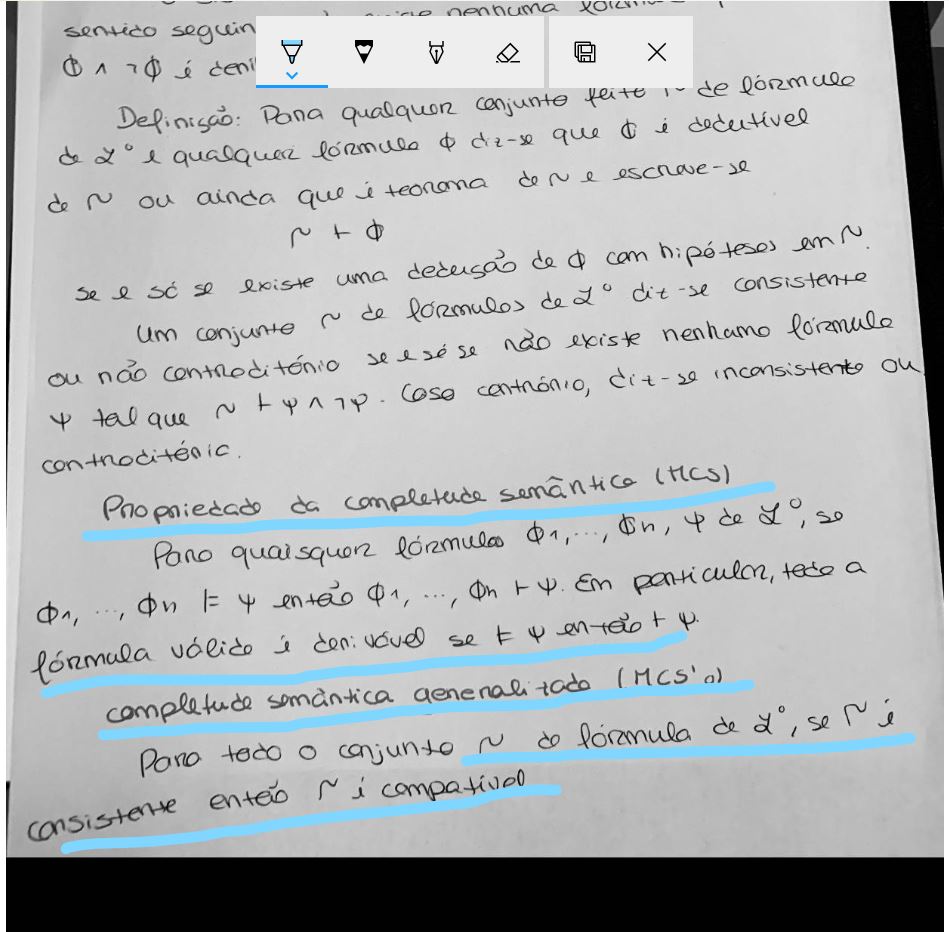 nenhuma
sentido seguin
Φ ∧ ¬Φ é deni
Definição: Para qualquer conjunto feito Γ de fórmula
de L° e qualquer fórmula Φ diz-se que Φ é dedutível
de Γ ou ainda que é teorema de Γ e escreve-se
Γ ⊢ Φ
se e só se existe uma dedução de Φ com hipóteses em Γ.
Um conjunto Γ de fórmulas de L° diz-se consistente
ou não contraditório se e só se não existe nenhuma fórmula
Ψ tal que Γ ⊢ Ψ ∧ ¬Ψ. Caso contrário, diz-se inconsistente ou
contraditório.
Propriedade da completude semântica (MCS)
Para quaisquer fórmulas Φ1, ..., Φn, Ψ de L°, se
Φ1, ..., Φn ⊨ Ψ então Φ1, ..., Φn ⊢ Ψ. Em particular, toda a
fórmula válida é derivável se ⊨ Ψ então ⊢ Ψ.
completude semântica generalizada (MCS'0)
Para todo o conjunto Γ de fórmula de L°, se Γ é
consistente então Γ é compatível